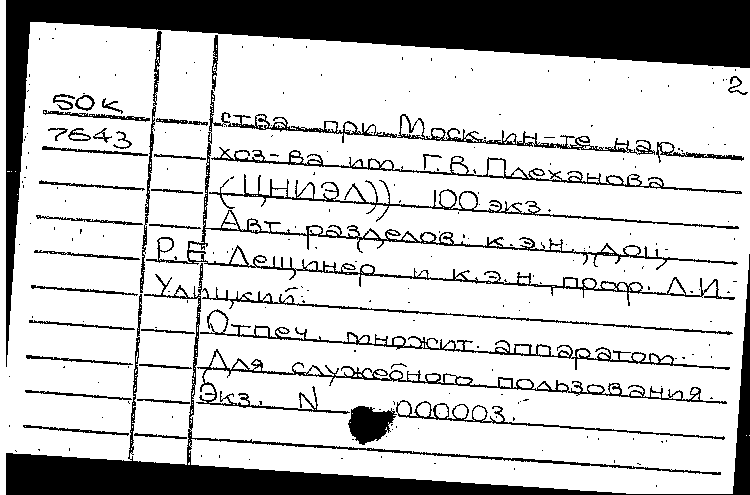 2
50К
7643
ства при Моск. ин-те нар.
хоз-ва им. Г.В. Плеханова
(ЦНИЭЛ)). 100 экз.
Авт. разделов: к.э.н., доц.
Р.Е. Лещинер и к.э.н., проф. Л.И.
Улицкий.
Отпеч. множит. аппаратом.
Для служебного пользования.
Экз. N 000003.